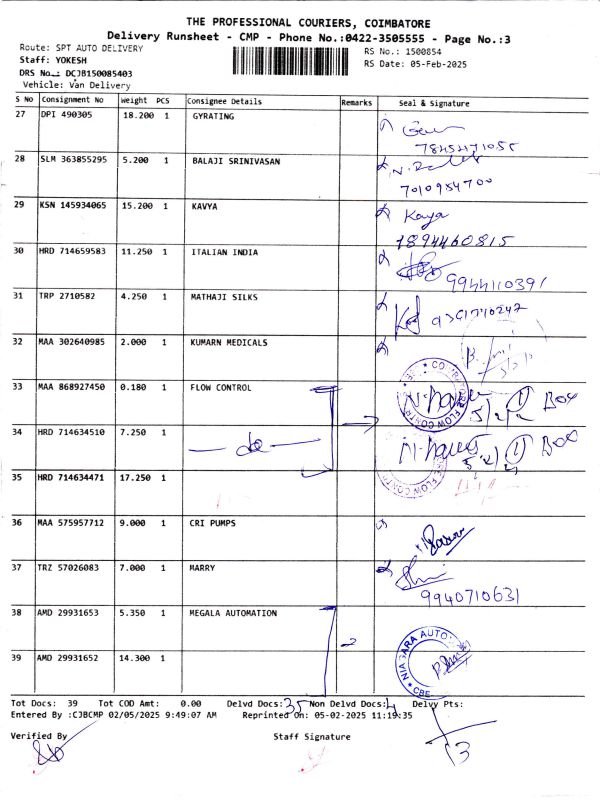 THE PROFESSIONAL COURIERS, COIMBATORE
Delivery Runsheet - CMP - Phone No.:0422-3505555 - Page No.:3
Route: SPT AUTO DELIVERY
RS No.: 1500854
Staff: YOKESH
RS Date: 05-Feb-2025
DRS No.: DCJB150085403
Vehicle: Van Delivery
S No Consignment No Weight PCS Consignee Details Remarks Seal & Signature
27 DPI 490305 18.200 1 GYRATING
7845471055
28 SLM 363855295 5.200 1 BALAJI SRINIVASAN
7010954700
29 KSN 145934065 15.200 1 KAVYA Kaya
7894460815
30 HRD 714659583 11.250 1 ITALIAN INDIA
9944110391
31 TRP 2710582 4.250 1 MATHAJI SILKS
32 MAA 302640985 2.000 1 KUMARN MEDICALS
33 MAA 868927450 0.180 1 FLOW CONTROL
34 HRD 714634510 7.250 1 do
35 HRD 714634471 17.250 1
36 MAA 575957712 9.000 1 CRI PUMPS
37 TRZ 57026083 7.000 1 MARRY
9940710631
38 AMD 29931653 5.350 1 MEGALA AUTOMATION
NIAGARA AUTO
CBE
39 AMD 29931652 14.300 1
Tot Docs: 39 Tot COD Amt: 0.00 Delvd Docs: 35 Non Delvd Docs: 4 Delvy Pts:
Entered By :CJBCMP 02/05/2025 9:49:07 AM Reprinted On: 05-02-2025 11:19:35
13
Verified By Staff Signature